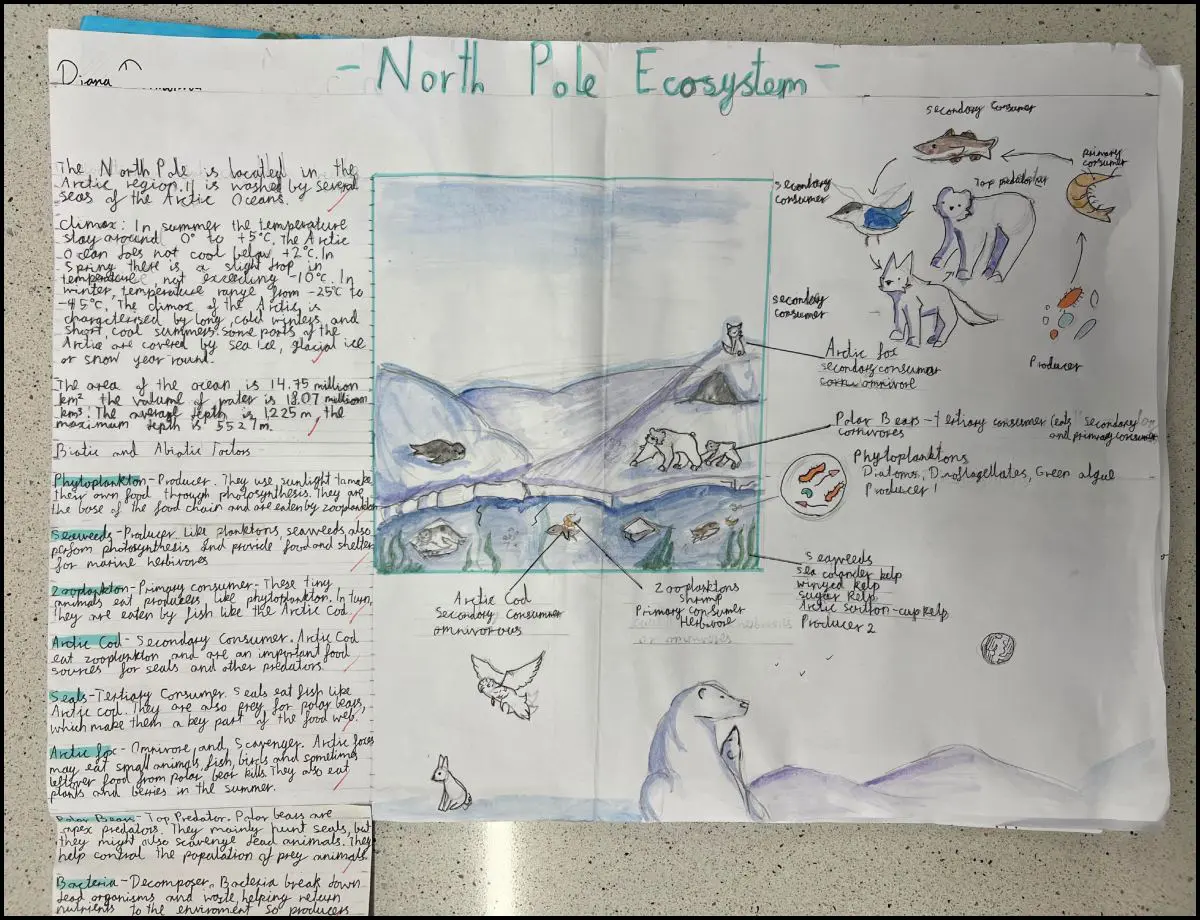 Diana
- North Pole Ecosystem -
The North Pole is located in the
Arctic region. It is washed by several
seas of the Arctic Oceans.
climax: In summer the temperature
stay around 0° to +5°C. The Arctic
Ocean does not cool below +2°C. In
Spring there is a slight drop in
temperature, not exceeding -10°C. In
winter temperature range from -25°C to
-45°C. The climax of the Arctic is
characterised by long, cold winters and
short, cool summers. Some parts of the
Arctic are covered by sea ice, glacial ice
or snow year round.
The area of the ocean is 14.75 million
km² the volume of water is 18.07 million
km³. The average depth is 1225 m, the
maximum depth is 5527m.
Biotic and Abiotic Factors
Phytoplankton - Producer. They use sunlight to make
their own food through photosynthesis. They are
the base of the food chain and are eaten by zooplankton
Seaweeds - Producer. Like planktons, seaweeds also
perform photosynthesis and provide food and shelter
for marine herbivores
Zooplankton - Primary consumer - These tiny
animals eat producers like phytoplankton. In turn,
they are eaten by fish like the Arctic Cod.
Arctic Cod - Secondary Consumer. Arctic Cod
eat zooplankton and are an important food
sources for seals and other predators.
Seals - Tertiary Consumer. Seals eat fish like
Arctic cod. They are also prey for polar bears,
which make them a key part of the food web.
Arctic fox - Omnivore and Scavenger. Arctic foxes
may eat small animals, fish, birds and sometimes
leftover food from polar bear kills. They also eat
plants and berries in the summer.
Polar Bears - Top Predator. Polar bears are
apex predators. They mainly hunt seals, but
they might also scavenge dead animals. They
help control the population of prey animals.
Bacteria - Decomposer. Bacteria break down
dead organisms and waste helping return
nutrients to the enviroment so producers
secondary consumer
primary
consumer
secondary
consumer
Top predator
secondary
consumer
Producer
Arctic fox
secondary consumer
omnivore
Polar Bears - tertiary consumer (eats secondary
and primary consumer
cornivores
Phytoplanktons
Diatoms, Dinoflagellates, Green algue
Producer 1
Seaweeds
Sea colander kelp
winged kelp
sugar kelp
Arctic suction-cup kelp
Producer 2
Arctic Cod
Secondary Consumer
omnivorous
Zooplanktons
Shrimp
Primary Consumer
Herbivore